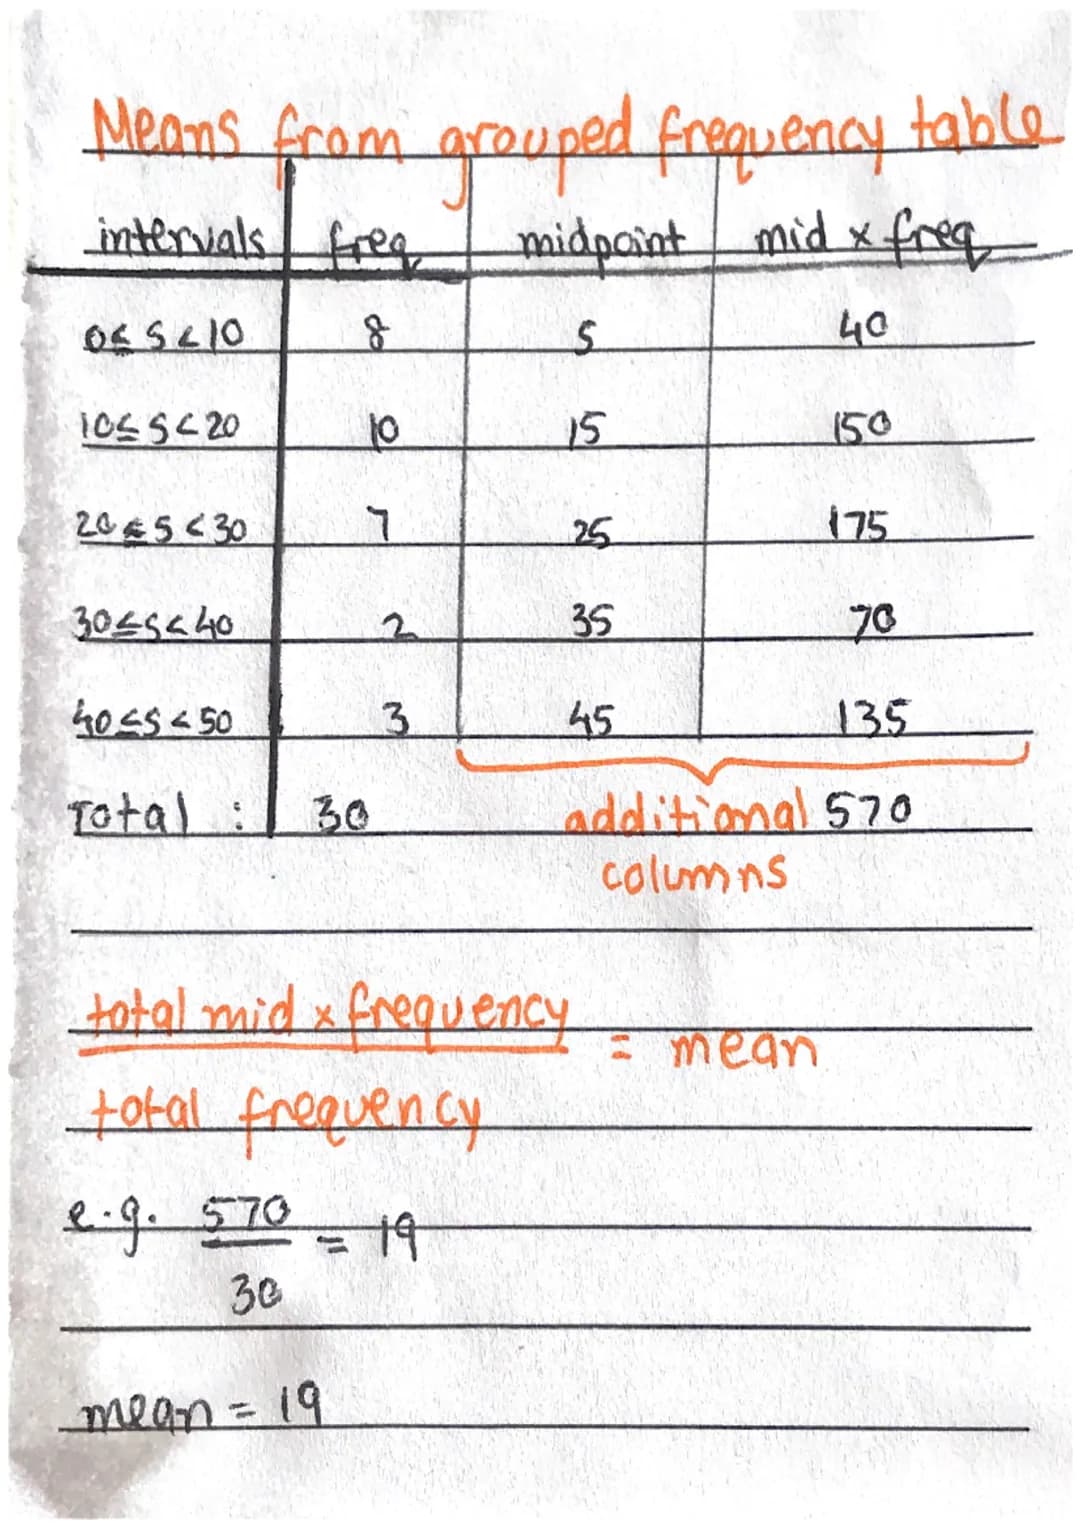 Means from grouped frequency table
intervals freq midpoint mid x freq
0≤s<10 8 5 40
10≤s<20 10 15 150
20≤s<30 7 25 175
30≤s<40 2 35 70
40≤s<50 3 45 135
Total : 30 additional 570
columns
total mid x frequency
= mean
total frequency
e.g. 570
= 19
30
mean = 19